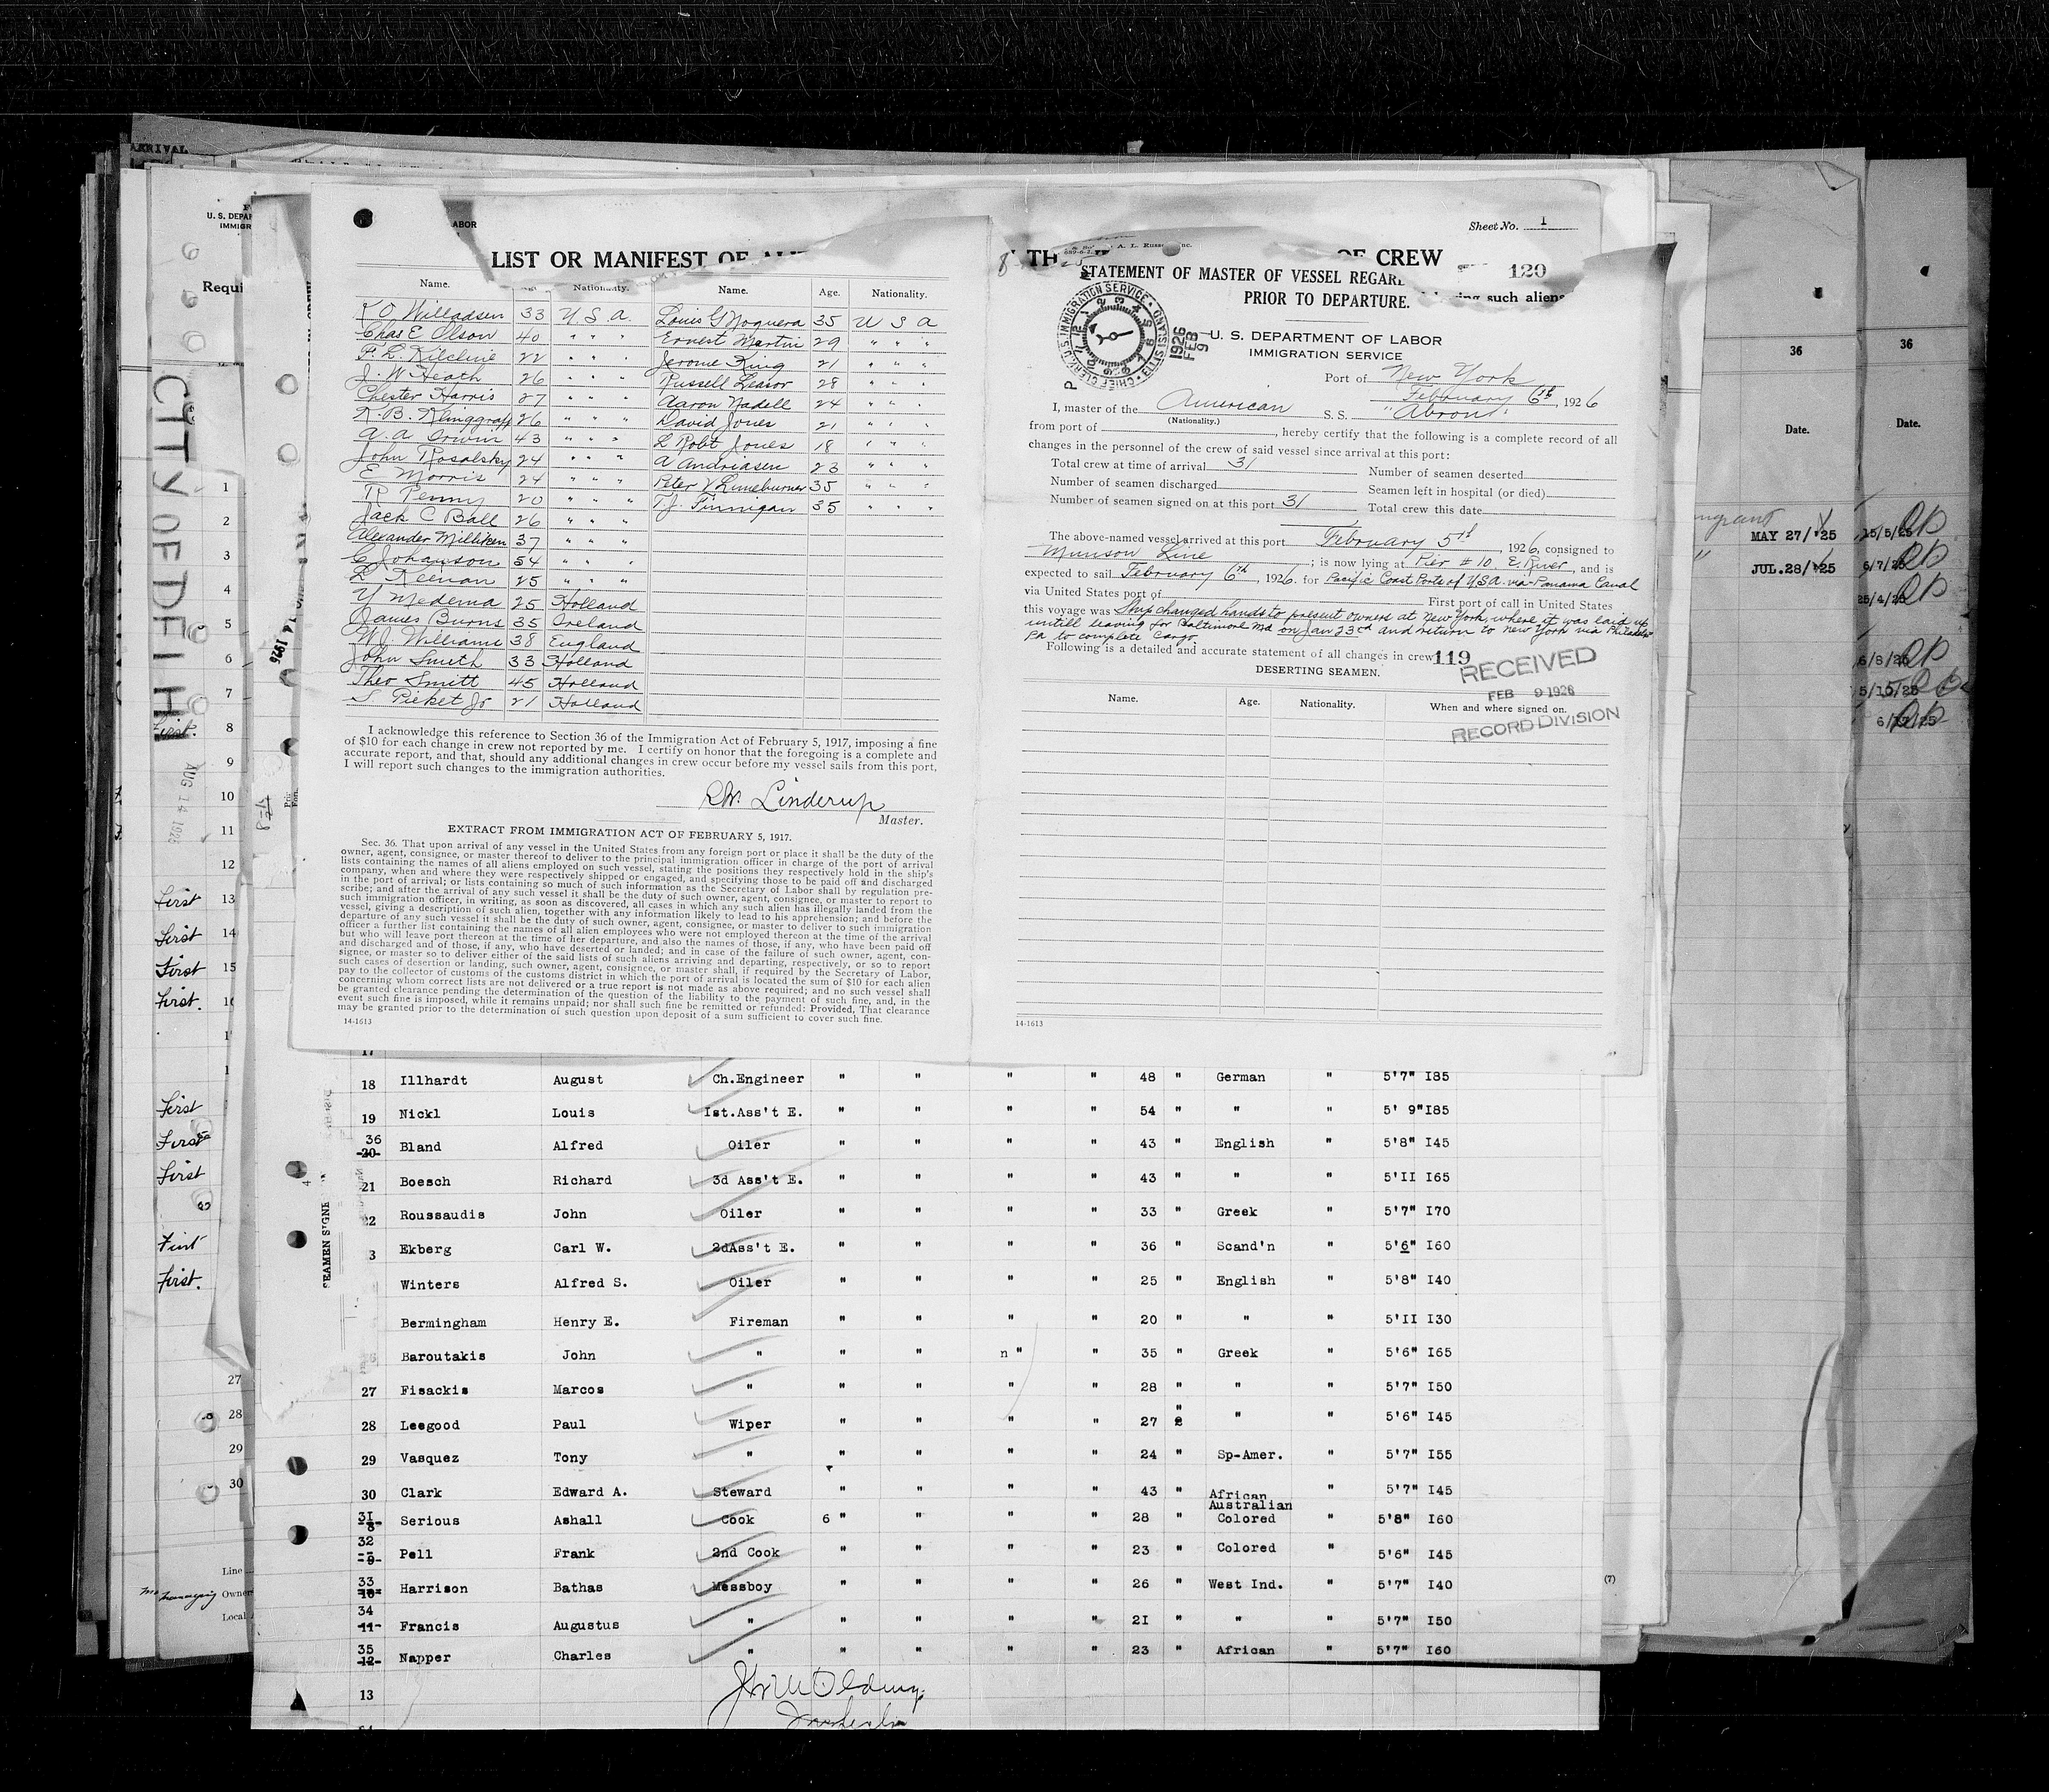 ARRIVAL
U. S. DEPAR
IMMIGR
Requi
CITY OF DE
AUG 14 1925
ABOR
LIST OR MANIFEST OF ALI
Sheet No. 1
TH
OF CREW
120
Name. Nationality. Name. Age. Nationality.
O Willadsen 33 U.S.A. Louis G Noguera 35 U S A
Chas E Olson 40 " " " Ernest Martin 29 " " "
P. L. Kilcline 22 " " " Jerome King 21 " " "
J. W Heath 26 " " " Russell Leasor 28 " " "
Chester Harris 27 " " " Aaron Nadell 24 " " "
K. B. Klinggraff 26 " " " David Jones 21 " " "
A. A Irwin 43 " " " L Robt Jones 18 " " "
John Rosalsky 24 " " " A Andriasen 23 " " "
E Morris 24 " " " Peter V Limeburner 35 " " "
R Penny 20 " " " T.J. Finnigan 35 " " "
Jack C Ball 26 " " "
Alexander Milliken 37 " " "
C Johanson 54 " " "
L Keenan 25 " " "
Y Medema 25 Holland
James Burns 35 Ireland
W.J. Williams 38 England
John Smith 33 Holland
Theo Smitt 45 Holland
S Picket Jr 21 Holland
I acknowledge this reference to Section 36 of the Immigration Act of February 5, 1917, imposing a fine
of $10 for each change in crew not reported by me. I certify on honor that the foregoing is a complete and
accurate report, and that, should any additional changes in crew occur before my vessel sails from this port,
I will report such changes to the immigration authorities.
Linderup
Master.
EXTRACT FROM IMMIGRATION ACT OF FEBRUARY 5, 1917.
Sec. 36. That upon arrival of any vessel in the United States from any foreign port or place it shall be the duty of the
owner, agent, consignee, or master thereof to deliver to the principal immigration officer in charge of the port of arrival
lists containing the names of all aliens employed on such vessel, stating the positions they respectively hold in the ship's
company, when and where they were respectively shipped or engaged, and specifying those to be paid off and discharged
in the port of arrival; or lists containing so much of such information as the Secretary of Labor shall by regulation pre-
scribe; and after the arrival of any such vessel it shall be the duty of such owner, agent, consignee, or master to report to
such immigration officer, in writing, as soon as discovered, all cases in which any such alien has illegally landed from the
vessel, giving a description of such alien, together with any information likely to lead to his apprehension; and before the
departure of any such vessel it shall be the duty of such owner, agent, consignee, or master to deliver to such immigration
officer a further list containing the names of all alien employees who were not employed thereon at the time of the arrival
but who will leave port thereon at the time of her departure, and also the names of those, if any, who have been paid off
and discharged and of those, if any, who have deserted or landed; and in case of the failure of such owner, agent, con-
signee, or master so to deliver either of the said lists of such aliens arriving and departing, respectively, or so to report
such cases of desertion or landing, such owner, agent, consignee, or master shall, if required by the Secretary of Labor,
pay to the collector of customs of the customs district in which the port of arrival is located the sum of $10 for each alien
concerning whom correct lists are not delivered or a true report is not made as above required; and no such vessel shall
be granted clearance pending the determination of the question of the liability to the payment of such fine, and, in the
event such fine is imposed, while it remains unpaid; nor shall such fine be remitted or refunded: Provided, That clearance
may be granted prior to the determination of such question upon deposit of a sum sufficient to cover such fine.
14-1613
STATEMENT OF MASTER OF VESSEL REGAR
PRIOR TO DEPARTURE.
such aliens
U.S. IMMIGRATION SERVICE
CHIEF CLERK
ELLIS ISLAND
1926 FEB 9
U. S. DEPARTMENT OF LABOR
IMMIGRATION SERVICE
Port of New York
February 6th, 1926
I, master of the American S. S. "Abron"
(Nationality.)
from port of , hereby certify that the following is a complete record of all
changes in the personnel of the crew of said vessel since arrival at this port:
Total crew at time of arrival 31 Number of seamen deserted
Number of seamen discharged Seamen left in hospital (or died)
Number of seamen signed on at this port 31 Total crew this date
The above-named vessel arrived at this port February 5th, 1926, consigned to
Munson Line; is now lying at Pier #10, E. River, and is
expected to sail February 6th, 1926. for Pacific Coast Ports of U.S.A. via Panama Canal
via United States port of First port of call in United States
this voyage was Ship changed hands to present owners at New York, where it was laid up
untill leaving for Baltimore Md on Jan 23rd and return to New York via Philadelphia
Pa to complete Cargo
Following is a detailed and accurate statement of all changes in crew
119
DESERTING SEAMEN.
RECEIVED
FEB 9 1926
RECORD DIVISION
Name. Age. Nationality. When and where signed on.
14-1613
17
18 Illhardt August Ch.Engineer " " " " 48 " German " 5'7" I85
19 Nickl Louis Ist.Ass't E. " " " " 54 " " " 5' 9" I85
36 20 Bland Alfred Oiler " " " " 43 " English " 5'8" I45
21 Boesch Richard 3d Ass't E. " " " " 43 " " " 5'II I65
22 Roussaudis John Oiler " " " " 33 " Greek " 5'7" I70
3 Ekberg Carl W. 2dAss't E. " " " " 36 " Scand'n " 5'6" I60
Winters Alfred S. Oiler " " " " 25 " English " 5'8" I40
Bermingham Henry E. Fireman " " " " 20 " " " 5'II I30
Baroutakis John " " " n " " 35 " Greek " 5'6" I65
27 Fisackis Marcos " " " " " 28 " " " 5'7" I50
28 Leegood Paul Wiper " " " " 27 " " " 5'6" I45
29 Vasquez Tony " " " " " 24 " Sp-Amer. " 5'7" I55
30 Clark Edward A. Steward " " " " 43 " African " 5'7" I45
Australian
31 8 Serious Ashall Cook 6 " " " " 28 " Colored " 5'8" I60
32 9 Pell Frank 2nd Cook " " " " 23 " Colored " 5'6" I45
33 10 Harrison Bathas Messboy " " " " 26 " West Ind. " 5'7" I40
34 11 Francis Augustus " " " " " 2I " " " 5'7" I50
35 12 Napper Charles " " " " " 23 " African " 5'7" I60
13
SEAMEN SIGNE
1
2
3
4
5
6
7
First. 8
9
10
11
12
First 13
First 14
First 15
First.
First
First
First
First
First.
27
28
29
30
Line
Owner
Local
(7)
36
Date.
MAY 27/25
JUL.28/25
36
Date.
15/5/25
6/7/25
25/4/25
6/8/25
5/15/25